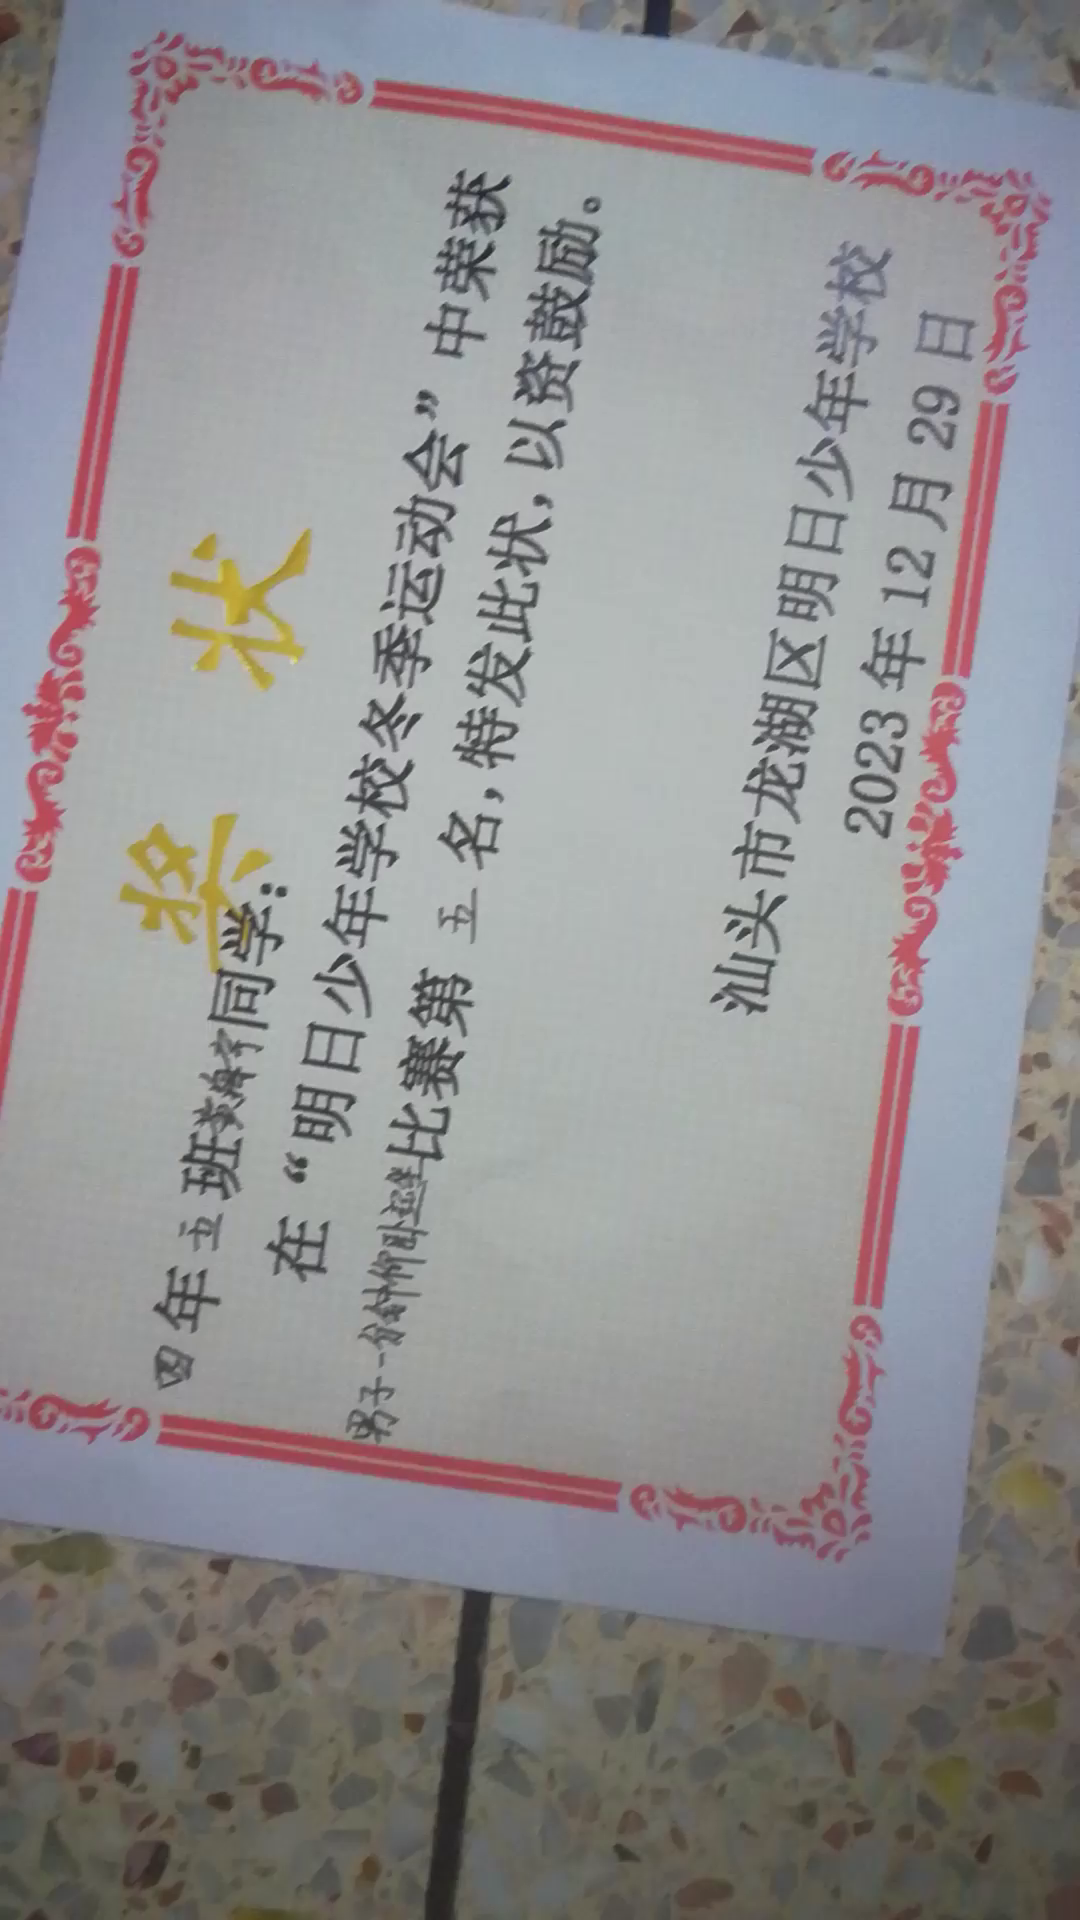 奖 状
四年五班黄海宇同学:
在“明日少年学校冬季运动会”中荣获
男子一分钟仰卧起坐比赛第 五 名,特发此状,以资鼓励。
汕头市龙湖区明日少年学校
2023 年 12 月 29 日